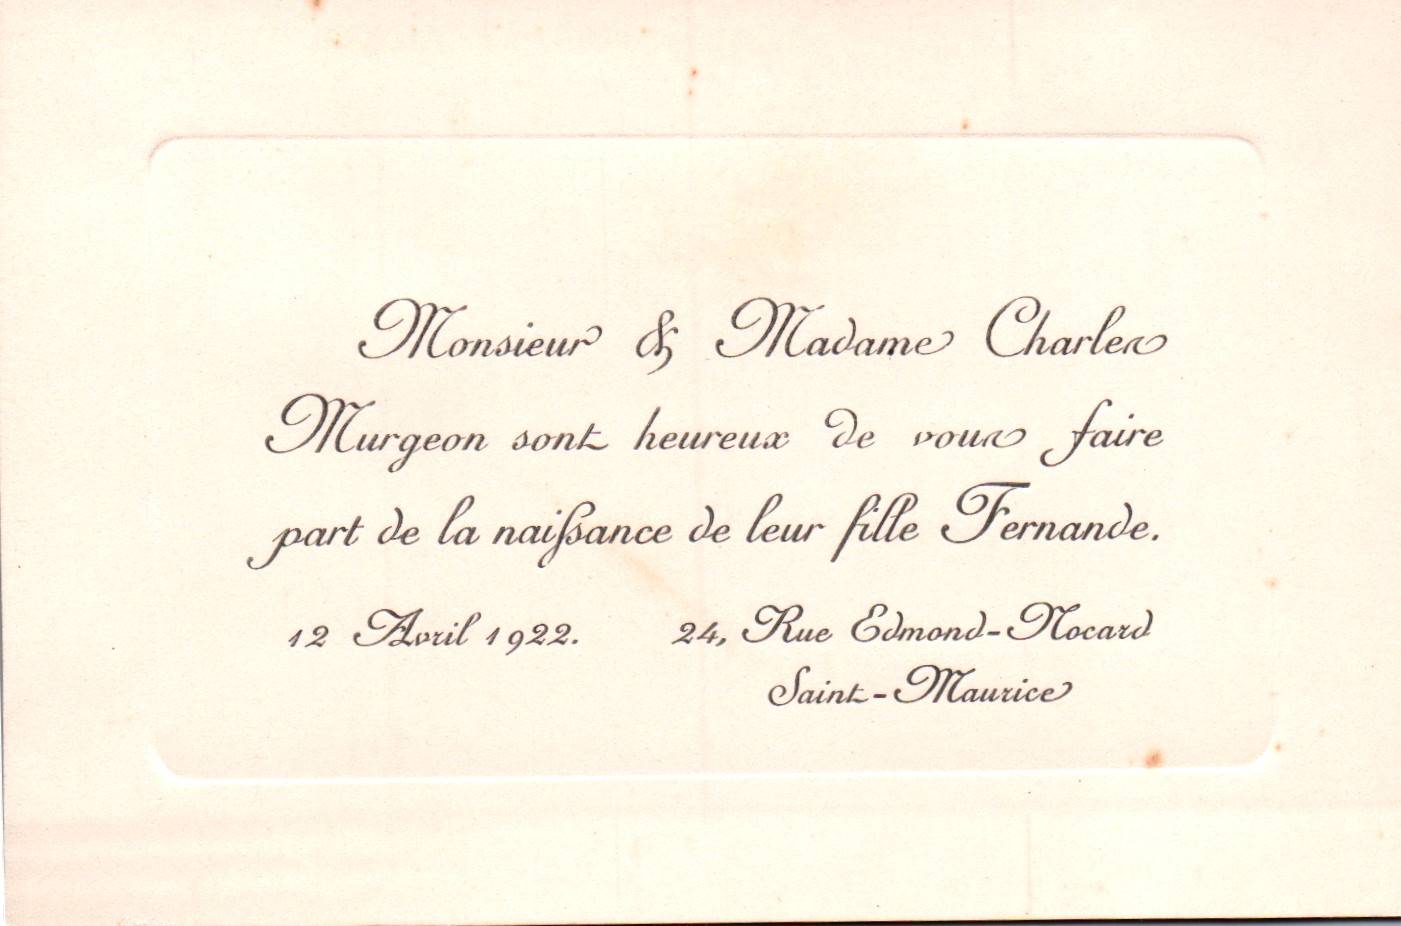 Monsieur & Madame Charles
Murgeon sont heureux de vous faire
part de la naissance de leur fille Fernande.
12 Avril 1922. 24, Rue Edmond-Nocard
Saint-Maurice